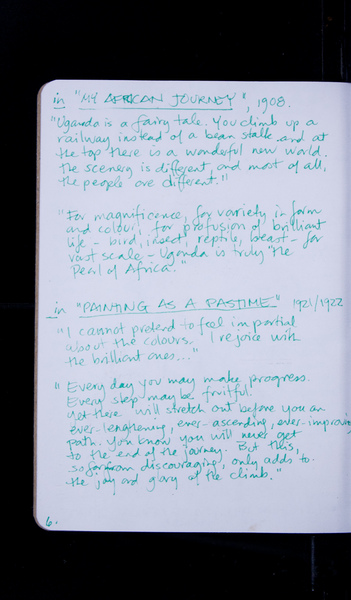 in "MY AFRICAN JOURNEY", 1908.
"Uganda is a fairy tale. You climb up a
railway instead of a bean stalk and at
the top there is a wonderful new world.
The scenery is different, and most of all,
the people are different."
"For magnificence, for variety in form
and colour, for profusion of brilliant
life - bird, insect, reptile, beast - for
vast scale - Uganda is truly "the
Pearl of Africa."
in "PAINTING AS A PASTIME" 1921/1922
"I cannot pretend to feel impartial
about the colours. I rejoice with
the brilliant ones..."
"Every day you may make progress.
Every step may be fruitful.
Yet there will stretch out before you an
ever-lengthening, ever-ascending, ever-improving
path. You know you will never get
to the end of the journey. But this,
so far from discouraging, only adds to
the joy and glory of the climb."
6.